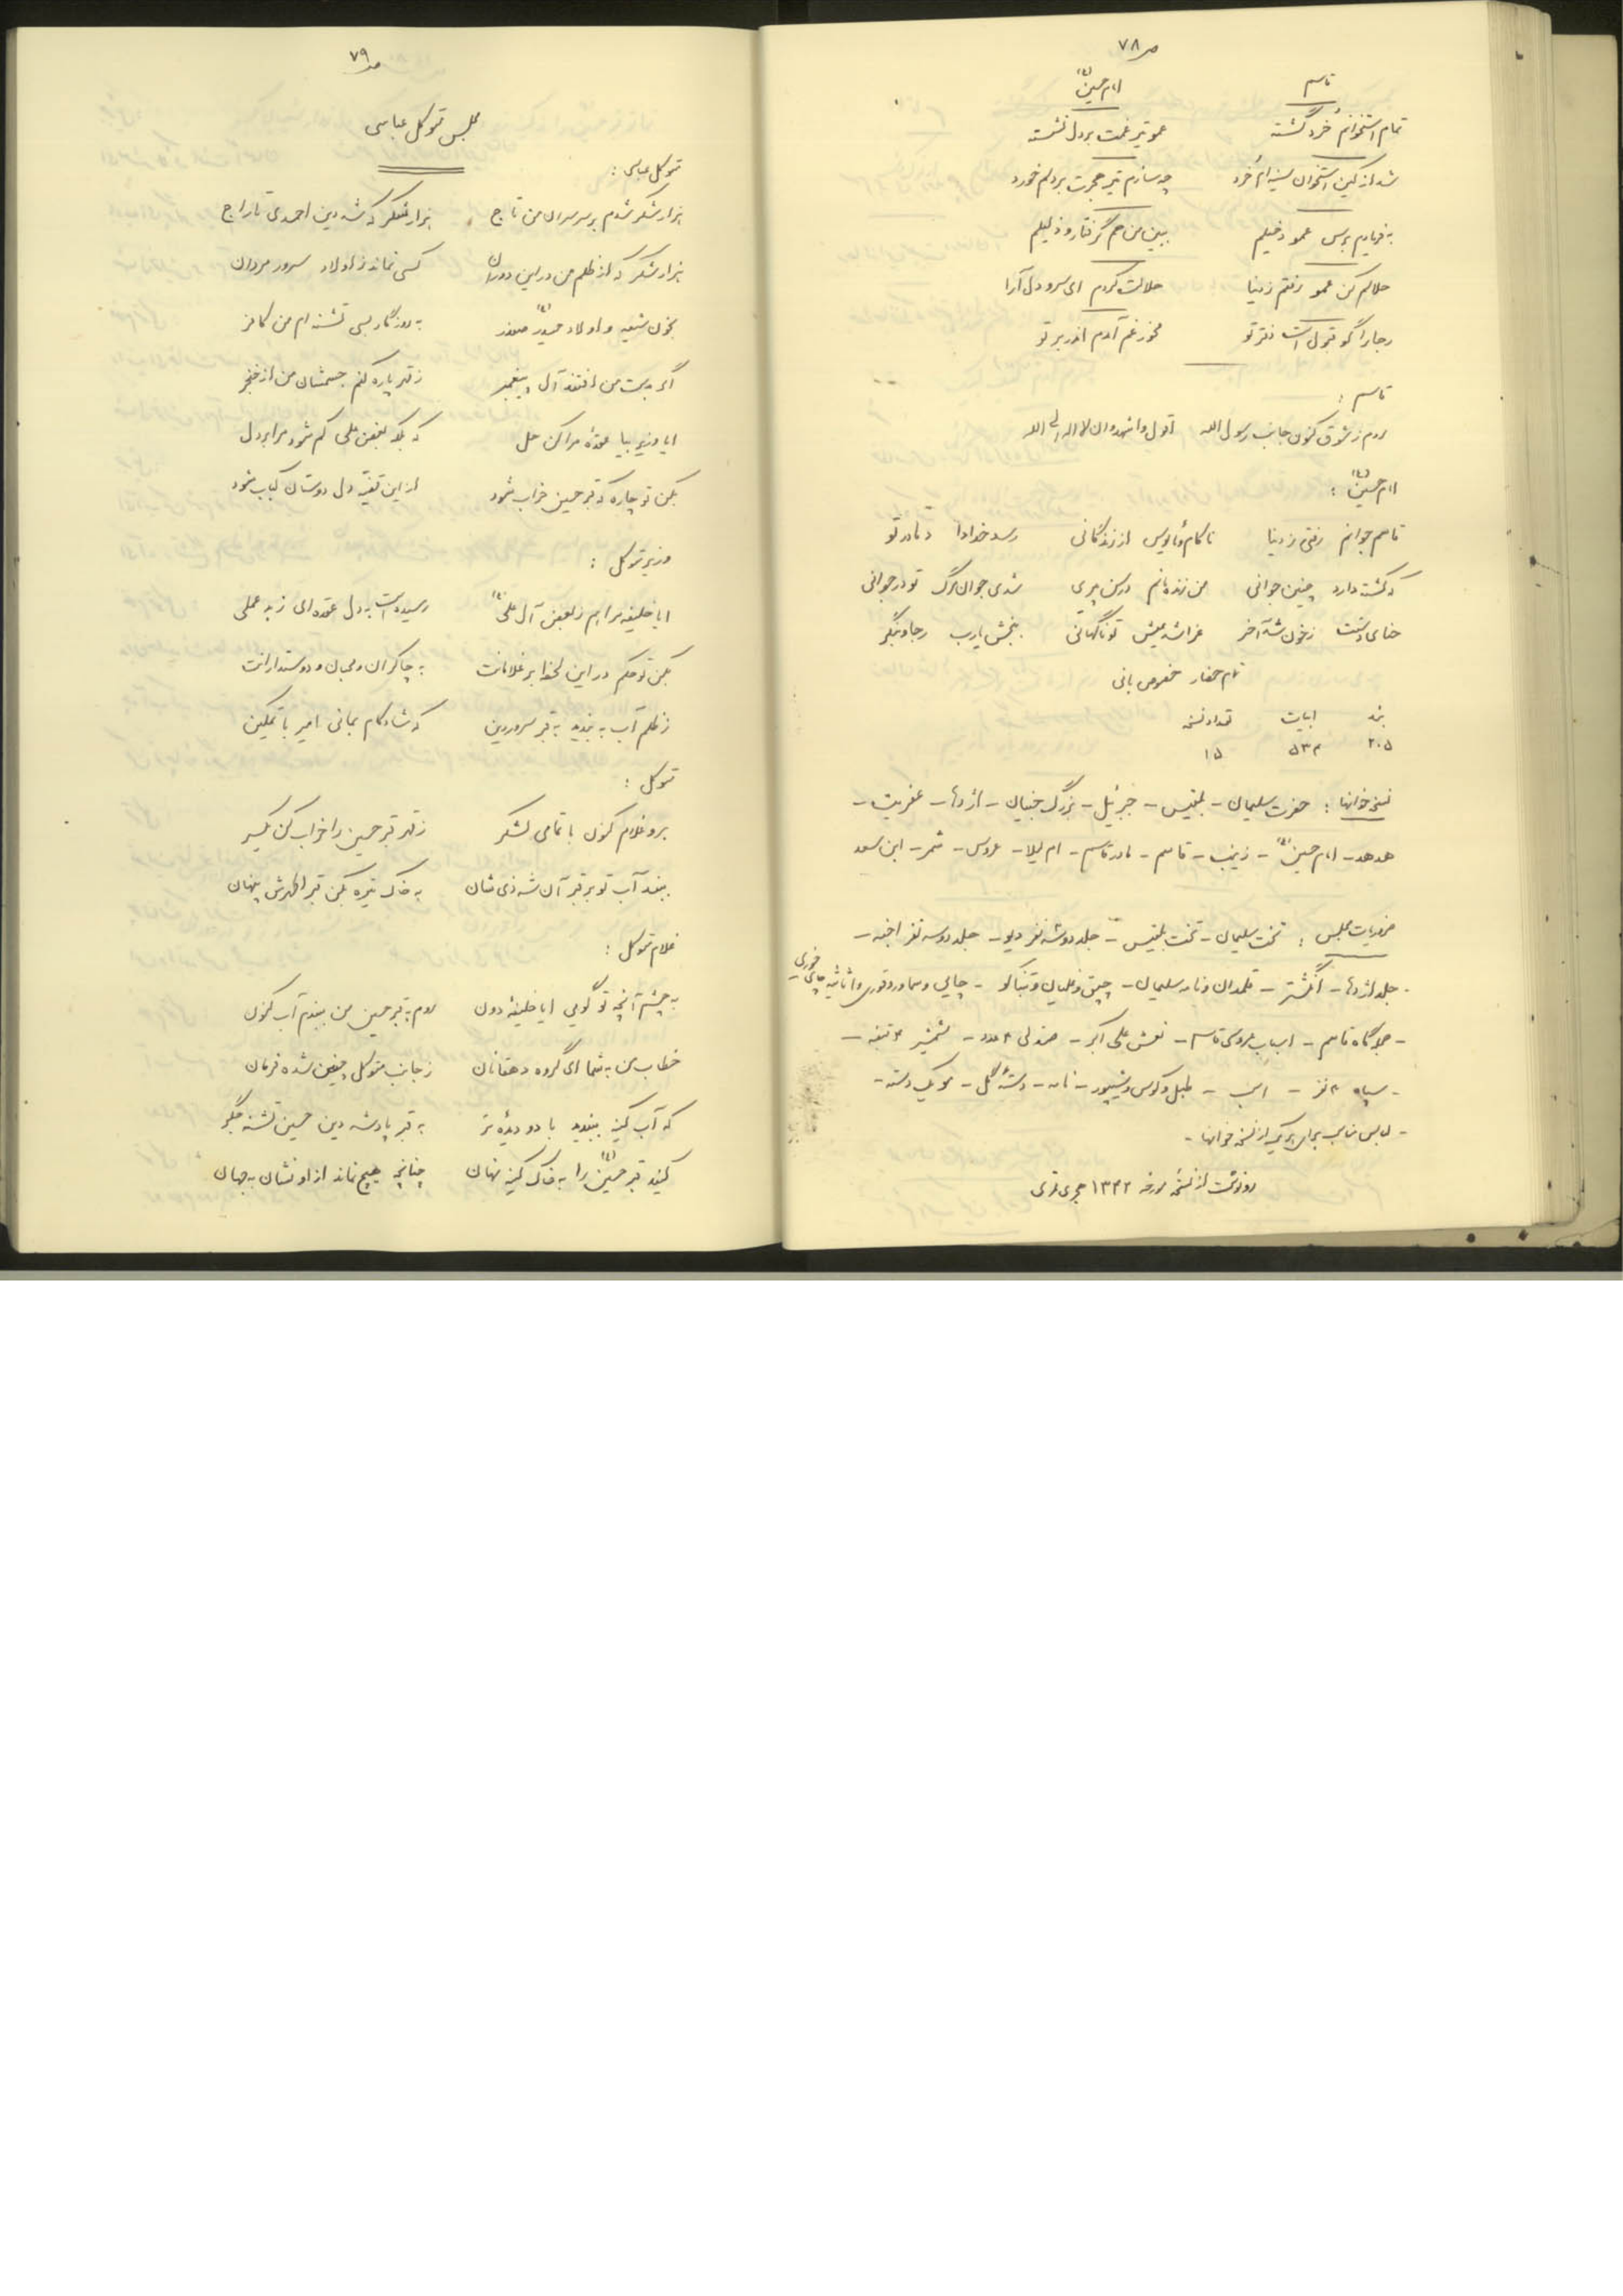 صـ ۷۸
قاسم
امام حسین (ع)
تمام استخوانم خُرد گشته عمو تیر غمت بر دل نشسته
شد از کین استخوان سینه‌ام خُرد چه سازم تیر هجرت بر دلم خورد
به فریادم برس عمو دخیلم ببین من هم گرفتار و ذلیلم
حلالم کن عمو رفتم ز دنیا حلالت کردم ای سرو دل‌آرا
رجا را گو قبول است دفتر تو مخور غم آمدم اندر بر تو
قاسم :
روم ز شوق کنون جانب رسول الله اقول و اشهد و ان لا اله الی الله
امام حسین (ع) :
قاسم جوانم رفتی ز دنیا ناکام و مأیوس از زندگانی رسد خدا را
که گشته دارد چنین جوانی من زنده مانم در سن پیری شدی جوان مرگ تو در جوانی
حنای دستت ز خون شد آخر عزا شد عیش تو ناگهانی ببخش یارب رجا و بنگر
تمام حضار خصوص بانی
بند ابیات تعداد نسخه
۲۰۵ ۵۳۴ ۱۵
نسخه خوانها : حضرت سلیمان - بلقیس - جبرئیل - بزرگ جنیان - اژدها - عفریت -
هدهد - امام حسین (ع) - زینب - قاسم - مادر قاسم - ام لیلا - عروس - شمر - ابن سعد
ضروریات مجلس : تخت سلیمان - تخت بلقیس - جلد دو سه نفر دیو - جلد دو سه نفر اجنه -
- جلد اژدها - انگشتر - قلمدان و نامه سلیمان - چپق و غلیان و تنباکو - چایی و سماور و قوری و اثاثیه چای خوری
- حجله گاه قاسم - اسباب عروسی قاسم - نعش علی اکبر - صندلی ۴ عدد - شمشیر ۴ قبضه -
- سپاه ۴ نفر - اسب - طبل و کوس و شیپور - نامه - دسته گل - یک دسته -
- لباس مناسب برای هر یک از نسخه خوانها -
رونوشت از نسخه مورخه ۱۳۴۲ هجری قمری
صـ ۷۹
مجلس متوکل عباسی
متوکل عباسی :
هزار شکر شدم بر سر سران من تاج هزار شکر که شد دین احمدی تاراج
هزار شکر که از ظلم من در این دوران کسی نماند ز اولاد سرور مردان
بخون شیعه و اولاد حیدر (ع) صفدر به روزگار بسی تشنه‌ام من کافر
اگر بدست من افتند آل پیغمبر ز قهر پاره کنم جسمشان من از خنجر
ایا وزیر بیا عقده مرا کن حل که بلکه بغض علی کم شود مرا بر دل
بکن تو چاره که قبر حسین خراب شود از این قضیه دل دوستان کباب شود
وزیر متوکل :
ایا خلیفه مرا هم ز بغض آل علی (ع) رسیده است به دل عقده‌ای ز بد عملی
بکن تو حکم در این لحظه بر غلامانت به چاکران و محبان و دوستدارانت
ز ظلم آب ببندید به قبر سرور دین که شادکام بمانی امیر با تمکین
متوکل :
برو غلام کنون با تمامی لشکر ز قهر قبر حسین را خراب کن یکسر
ببند آب تو بر قبر آن شه ذی شان به خاک تیره بکن قبر اطهرش پنهان
غلام متوکل :
به چشم آنچه تو گویی ایا خلیفه دون روم به قبر حسین من ببندم آب کنون
خطاب من به شما ای گروه دهقانان ز جانب متوکل چنین شده فرمان
که آب کینه ببندید با دو دیده تر به قبر پادشه دین حسین تشنه جگر
کنید قبر حسین (ع) را به خاک کینه نهان چنانچه هیچ نماند از او نشان به جهان